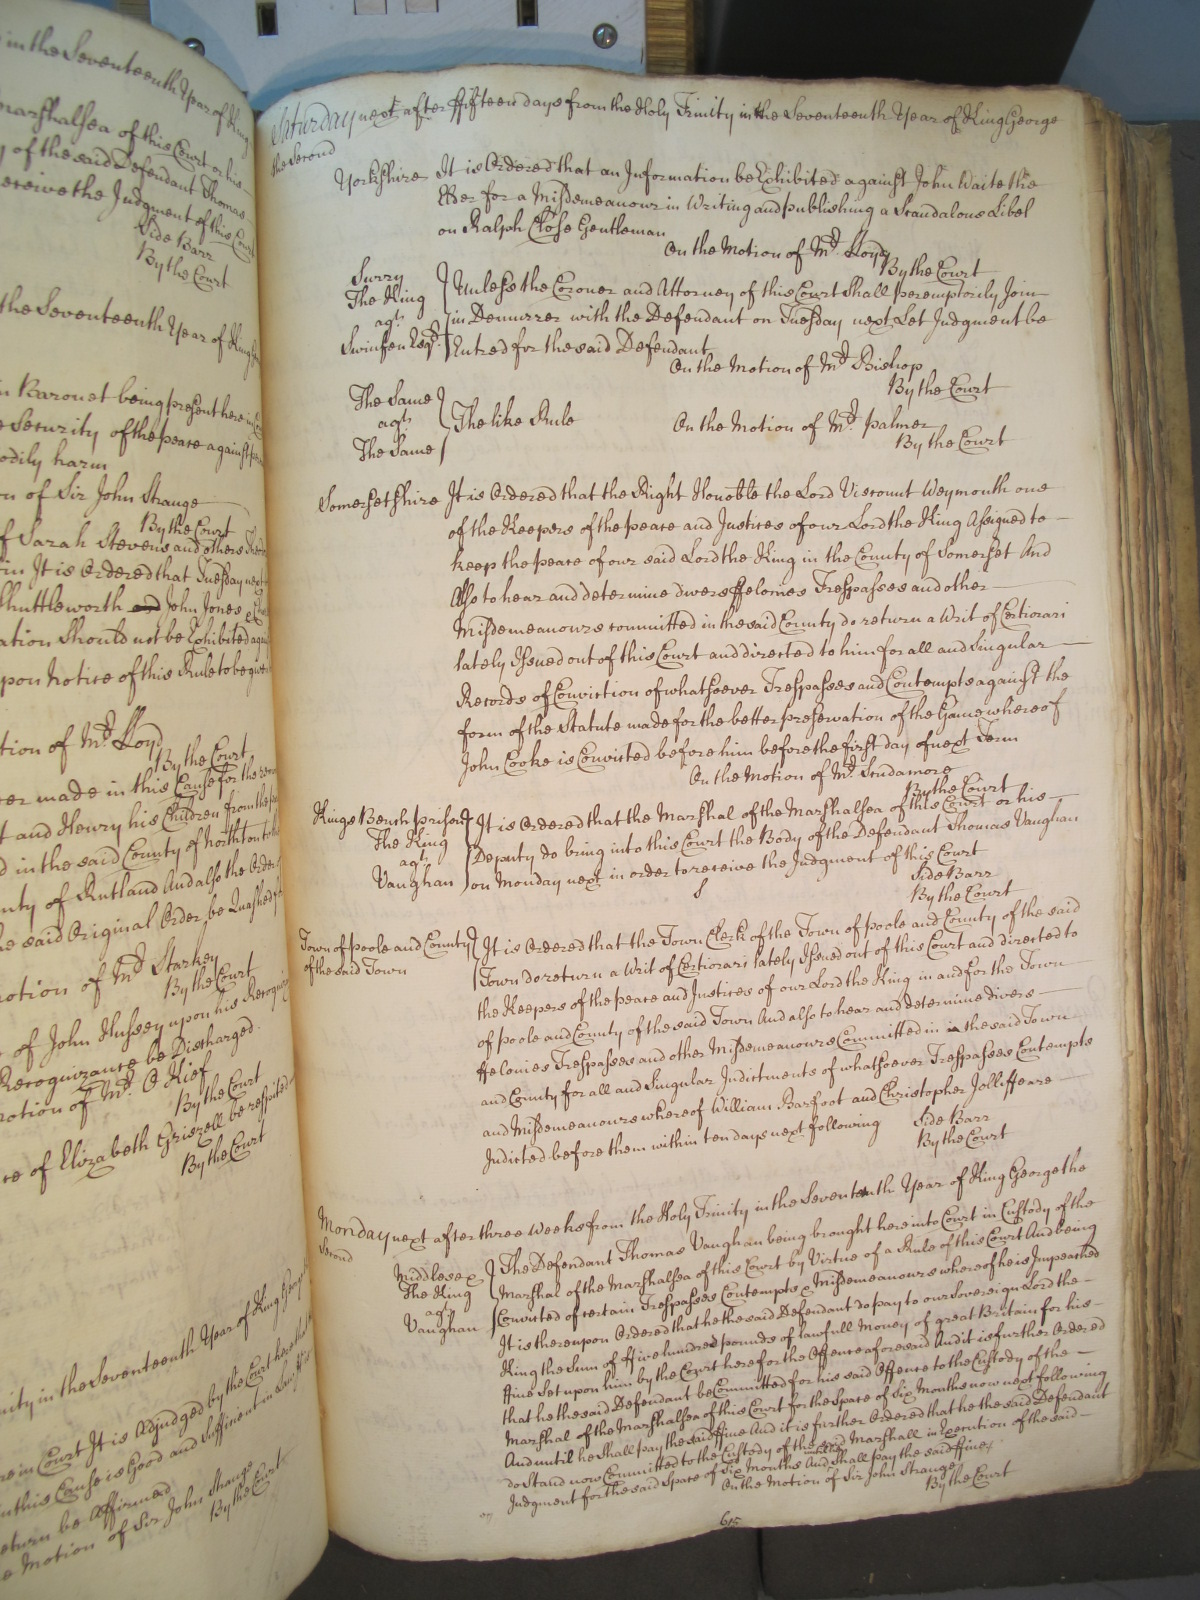 in the Seventeenth Year of King
Marshalsea of this Court or his
of the said Defendant Thomas
receive the Judgment of this Court
Side Barr
By the Court
the Seventeenth Year of King
Baronet being present here in
Security of the peace against
bodily harm
on of Sir John Strange
By the Court
of Sarah Stevens and others
It is Ordered that Tuesday next
Shuttleworth and John Jones
ation Should not be Exhibited
upon Notice of this Rule to be given
tion of Mr. Lloyd
By the Court
er made in this Cause for the
and Henry his Children from the
d in the said County of Northton to
nty of Rutland And also the Order
he said Original Order be Quashed
otion of Mr. Starkey
By the Court
of John Hussey upon his
Recognizance be Discharged
otion of Mr. O Kief
By the Court
ce of Elizabeth Griszell be respited
By the Court
nity in the Seventeenth Year of King
re in Court It is Adjudged by the Court here
in this Cause is Good and Sufficient in
eturn be Affirmed
e Motion of Sir John Strange
By the Court
Saturday next after ffifteen days from the Holy Trinity in the Seventeenth Year of King George
the Second
Yorkshire It is Ordered that an Information be Exhibited against John Waite the
Elder for a Misdemeanour in Writing and publishing a Scandalous Libel
on Ralph Close Gentleman
On the Motion of Mr. Lloyd
By the Court
Surry
The King
agt.
Swinfen Esqr.
Unless the Coroner and Attorney of this Court Shall peremptorily Join
in Demurrer with the Defendant on Tuesday next Let Judgment be
Entred for the said Defendant
On the Motion of Mr. Bishop
By the Court
The Same
agt.
The Same
The like Rule
On the Motion of Mr. Palmer
By the Court
Somersetshire It is Ordered that the Right Honoble the Lord Viscount Weymouth one
of the Keepers of the peace and Justices of our Lord the King Assigned to
keep the peace of our said Lord the King in the County of Somerset And
Also to hear and determine divers ffelonies Trespasses and other
Misdemeanours committed in the said County do return a Writ of Certiorari
lately Issued out of this Court and directed to him for all and Singular
Records of Conviction of whatsoever Trespasses and Contempts against the
form of the Statute made for the better preservation of the Game whereof
John Cooke is Convicted before him before the first day of next Term
On the Motion of Mr. Scudamore
By the Court
Kings Bench prison
The King
agt.
Vaughan
It is Ordered that the Marshal of the Marshalsea of this Court or his
Deputy do bring into this Court the Body of the Defendant Thomas Vaughan
on Monday next in order to receive the Judgment of this Court
Side Barr
By the Court
Town of poole and County
of the said Town
It is Ordered that the Town Clerk of the Town of poole and County of the said
Town do return a Writ of Certiorari lately Issued out of this Court and directed to
the Keepers of the peace and Justices of our Lord the King in and for the Town
of poole and County of the said Town And also to hear and determine divers
ffelonies Trespasses and other Misdemeanours Committed in the said Town
and County for all and Singular Indictments of whatsoever Trespasses Contempts
and Misdemeanours whereof William Barfoot and Christopher Jolliffe are
Indicted before them within ten days next following
Side Barr
By the Court
Monday next after three Weeks from the Holy Trinity in the Seventeenth Year of King George the
Second
Middlesex
The King
agt.
Vaughan
The Defendant Thomas Vaughan being brought here into Court in Custody of the
Marshal of the Marshalsea of this Court by Virtue of a Rule of this Court And being
Convicted of certain Trespasses Contempts & Misdemeanours whereof he is Impeached
It is thereupon Ordered that he the said Defendant do pay to our Sovereign Lord the
King the Sum of ffive hundred pounds of lawfull Money of great Britain for his
ffine Set upon him by the Court here for the Offence aforesaid And it is further Ordered
that he the said Defendant be Committed for his said Offence to the Custody of the
Marshal of the Marshalsea of this Court for the Space of Six Months now next following
And until he Shall pay the said ffine And it is further Ordered that he the said Defendant
do Stand now Committed to the Custody of the said Marshall in Execution of the said
Judgment for the said Space of Six Months And until he Shall pay the said ffine
On the Motion of Sir John Strange
By the Court